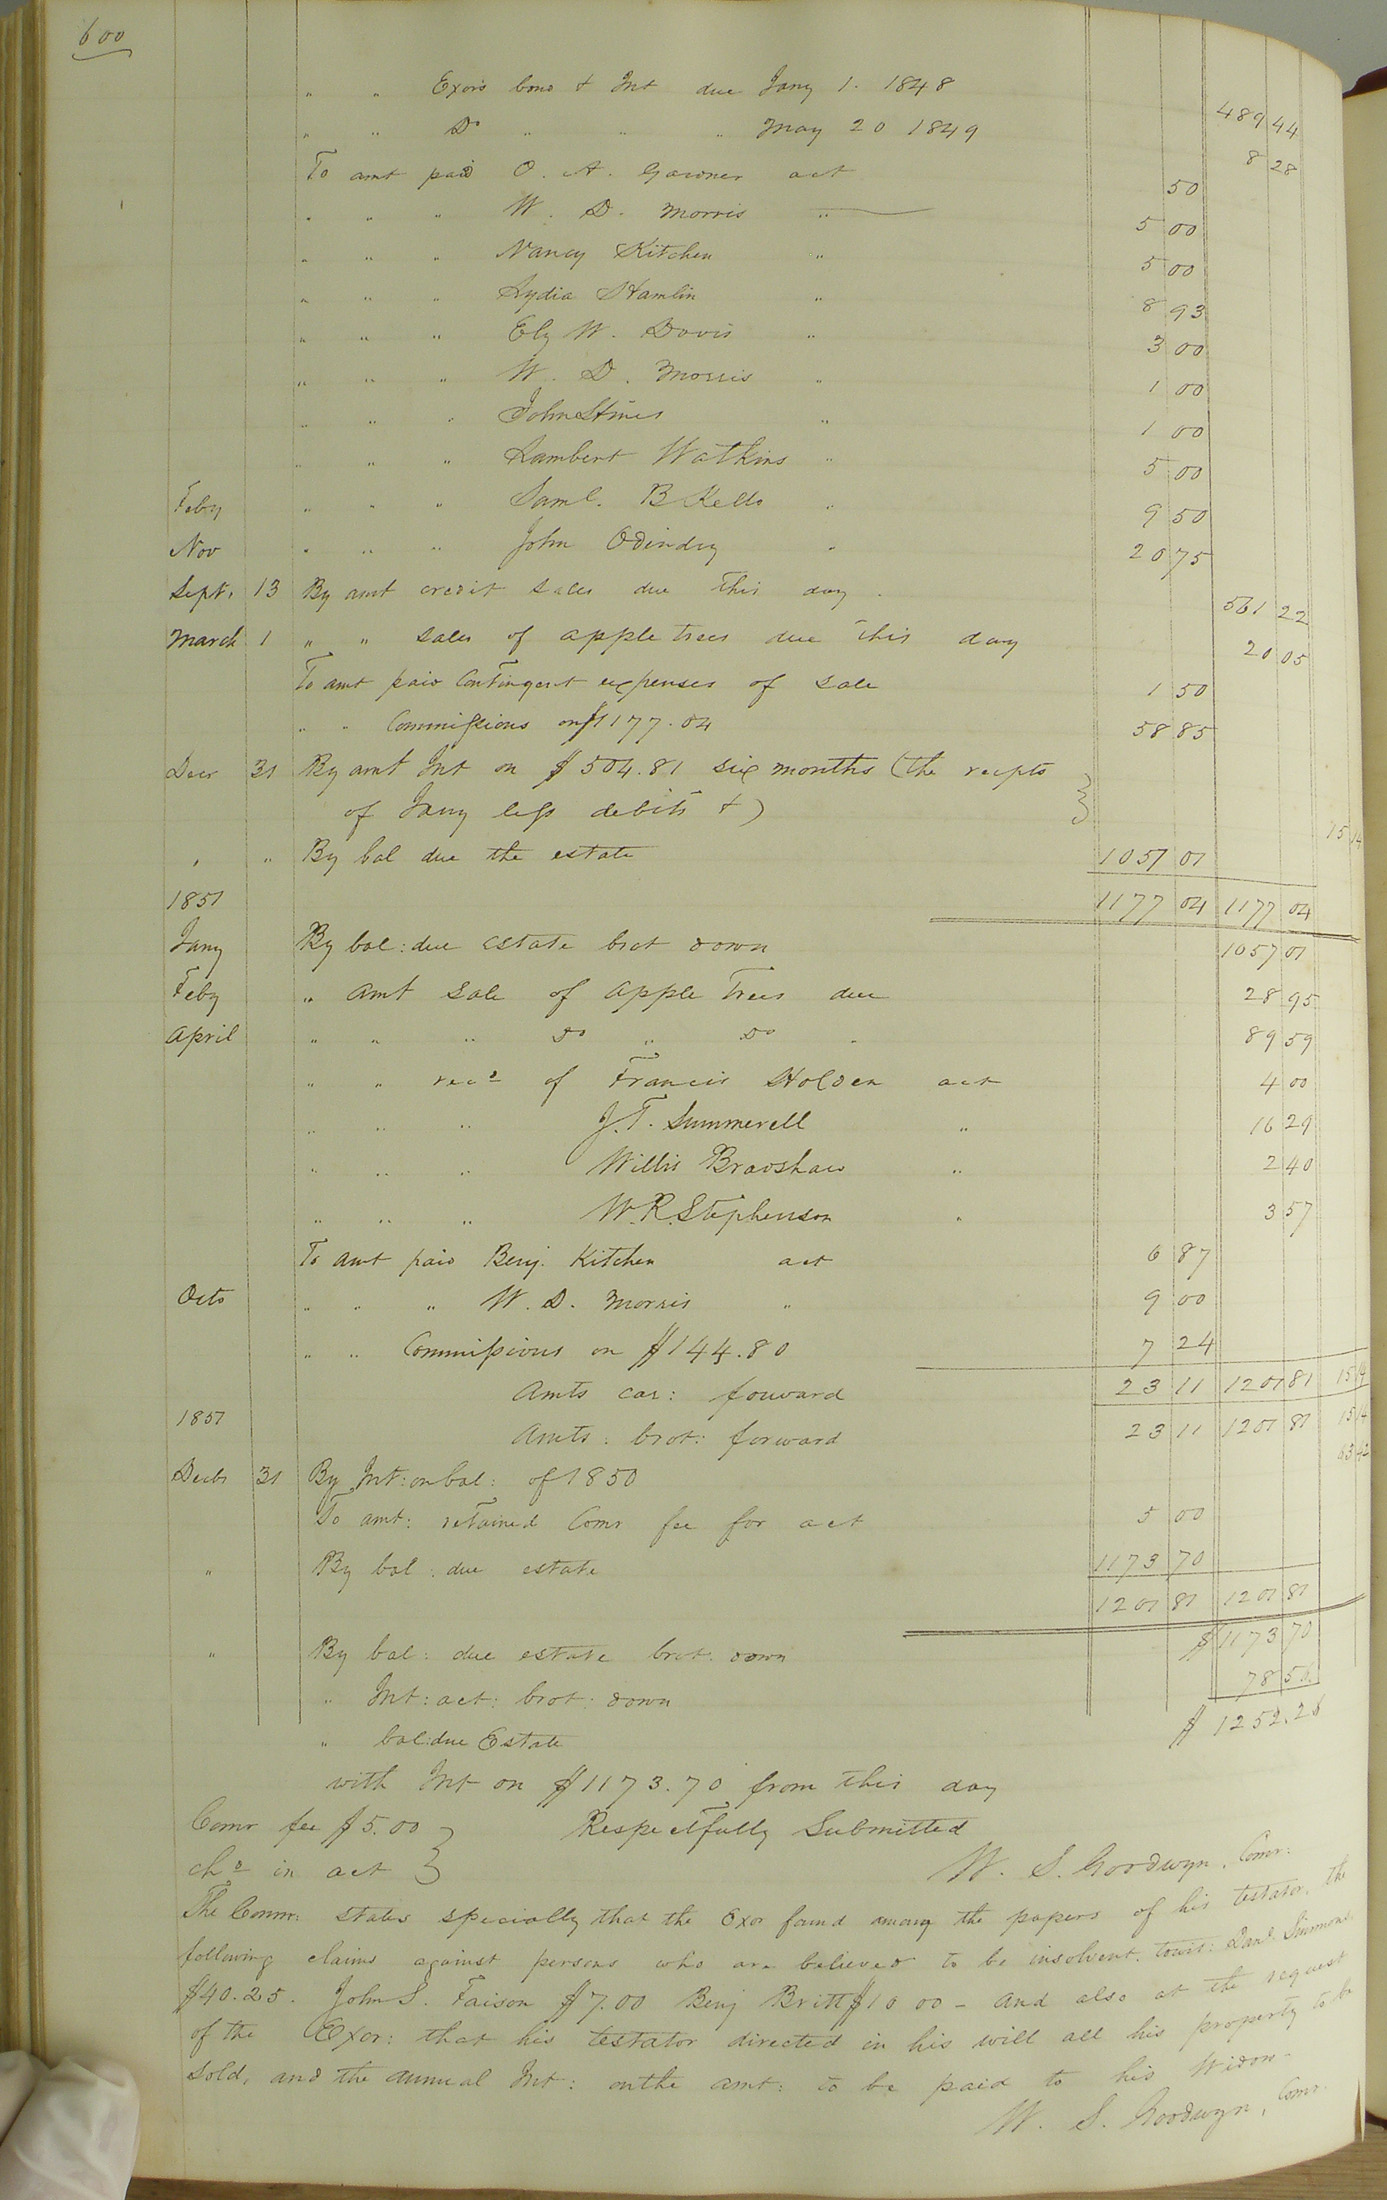 600
" " Exors bond & Int due Jany 1. 1848 489 44
" " Do " " " May 20 1849 8 28
To amt paid O. A. Gardner act 50
" " " W. D. Morris " 5 00
" " " Nancy Kitchen " 5 00
" " " Lydia Hamlin " 8 93
" " " Ely W. Davis " 3 00
" " " W. D. Morris " 1 00
" " " John Stines " 1 00
" " " Lambert Watkins " 5 00
Feby " " " Saml. B Kello " 9 50
Nov " " " John " 20 75
Sept. 13 By amt credit sales due this day. 561 22
March 1 " " sales of apple trees due this day 20 05
To amt paid Contingent expenses of sale 1 50
" " Commissions on $1177.04 58 85
Decr 31 By amt Int on $504.81 six months (the recpts
of Jany less debits &) 15 14
" " By bal due the estate 1057 01
1851 1177 04 1177 04
Jany By bal: due estate brot down 1057 01
Feby " amt sale of apple Trees due 28 95
April " " " Do " Do " 89 59
" " recd of Francis Holden act 4 00
" " " J. T. Summerell " 16 29
" " " Willis Bradshaw " 2 40
" " " W. R. Stephenson " 3 57
To amt paid Benj. Kitchen act 6 87
Octo " " " W. D. Morris " 9 00
" " Commissions on $144.80 7 24
Amts car: fouward 23 11 1201 81 15 14
1851 Amts: brot: forward 23 11 1201 81 15 14
Decbr 31 By Int: on bal: of 1850 63 42
To amt: retained Comr fee for act 5 00
" By bal: due estate 1173 70
1201 81 1201 81
" By bal: due estate brot: down $1173 70
" Int: act: brot: down 78 56
" bal: due Estate $1252.26
with Int on $1173.70 from this day
Comr fee $5.00 } Respectfully Submitted
chd in act } W. S. Goodwyn, Comr:
The Comr: states specially that the Exor found among the papers of his testator, the
following claims against persons who are believed to be insolvent. towit: Danl. Simmons
$40.25. John S. Faison $7.00 Benj Britt $10 00 – And also at the request
of the Exor: that his testator directed in his will all his property to be
sold, and the annual Int: on the amt: to be paid to his Widow–
W. S. Goodwyn, Comr.